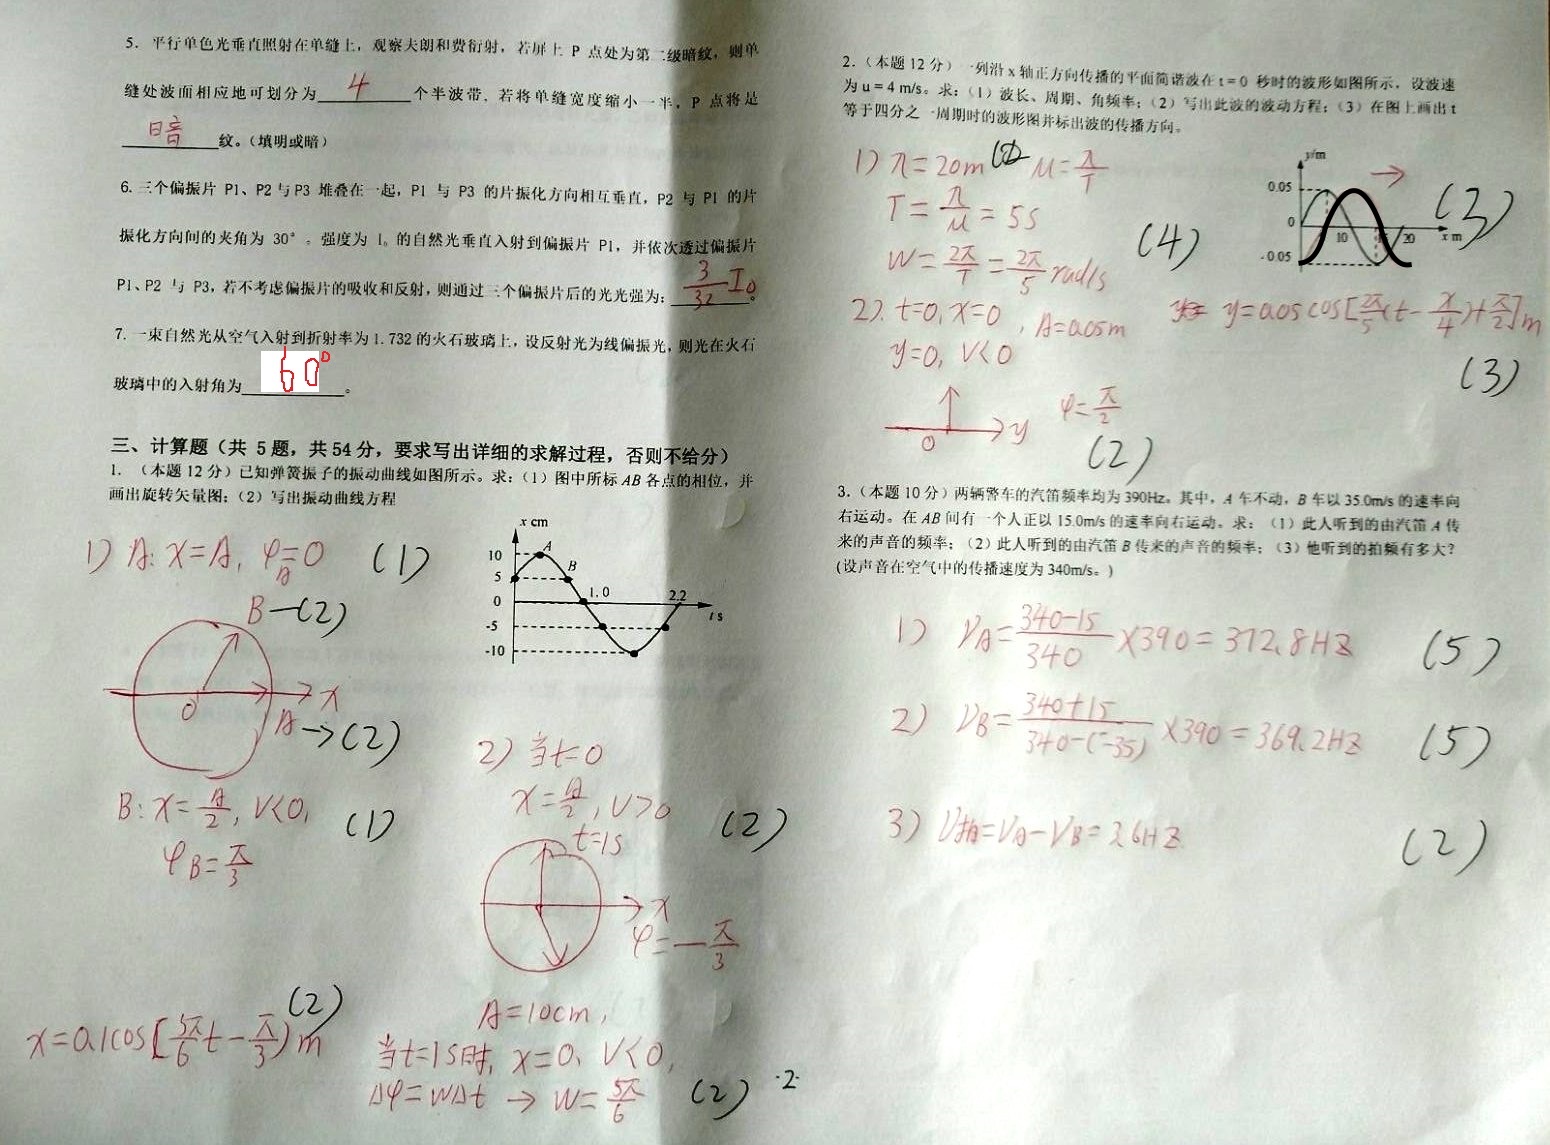 5. 平行单色光垂直照射在单缝上，观察夫朗和费衍射，若屏上 P 点处为第二级暗纹，则单
缝处波面相应地可划分为 4 个半波带，若将单缝宽度缩小一半，P 点将是
暗 纹。（填明或暗）
6. 三个偏振片 P1、P2 与 P3 堆叠在一起，P1 与 P3 的片振化方向相互垂直，P2 与 P1 的片
振化方向间的夹角为 30° 。强度为 I。的自然光垂直入射到偏振片 P1，并依次透过偏振片
P1、P2 与 P3，若不考虑偏振片的吸收和反射，则通过三个偏振片后的光光强为： 3/32 I₀ 。
7. 一束自然光从空气入射到折射率为 1.732 的火石玻璃上，设反射光为线偏振光，则光在火石
玻璃中的入射角为 60° 。
三、计算题（共 5 题，共 54 分，要求写出详细的求解过程，否则不给分）
1. （本题 12 分）已知弹簧振子的振动曲线如图所示。求：（1）图中所标 AB 各点的相位，并
画出旋转矢量图；（2）写出振动曲线方程
x cm
10
5
0
-5
-10
A
B
1.0
2.2
t s
1) A: x=A, φ_A=0 (1)
B—(2)
O
x
A→(2)
B: x=A/2, V<0, (1)
φ_B=π/3
2) 当t=0
x=A/2, V>0 (2)
t=1s
x
φ=-π/3
A=10cm,
当t=1s时, x=0, V<0,
Δφ=WΔt → W=5π/6 (2)
(2)
x=0.1cos[5π/6 t-π/3) m
·2·
2.（本题 12 分）一列沿 x 轴正方向传播的平面简谐波在 t = 0 秒时的波形如图所示，设波速
为 u = 4 m/s。求：（1）波长、周期、角频率；（2）写出此波的波动方程；（3）在图上画出 t
等于四分之一周期时的波形图并标出波的传播方向。
y/m
0.05
0
-0.05
10
20
x m
(3)
1) λ=20m u=λ/T
T=λ/u=5s
W=2π/T=2π/5 rad/s (4)
2). t=0, x=0, A=0.05m
y=0, V<0
y=0.05cos[2π/5(t-x/4)+π/2]m
(3)
O
y
φ=π/2
(2)
3.（本题 10 分）两辆警车的汽笛频率均为 390Hz。其中，A 车不动，B 车以 35.0m/s 的速率向
右运动。在 AB 间有一个人正以 15.0m/s 的速率向右运动。求：（1）此人听到的由汽笛 A 传
来的声音的频率；（2）此人听到的由汽笛 B 传来的声音的频率；（3）他听到的拍频有多大？
(设声音在空气中的传播速度为 340m/s。)
1) ν_A=340-15/340 ×390=372.8HZ (5)
2) ν_B=340+15/340-(-35) ×390=369.2HZ (5)
3) ν拍=ν_A-ν_B=3.6HZ (2)